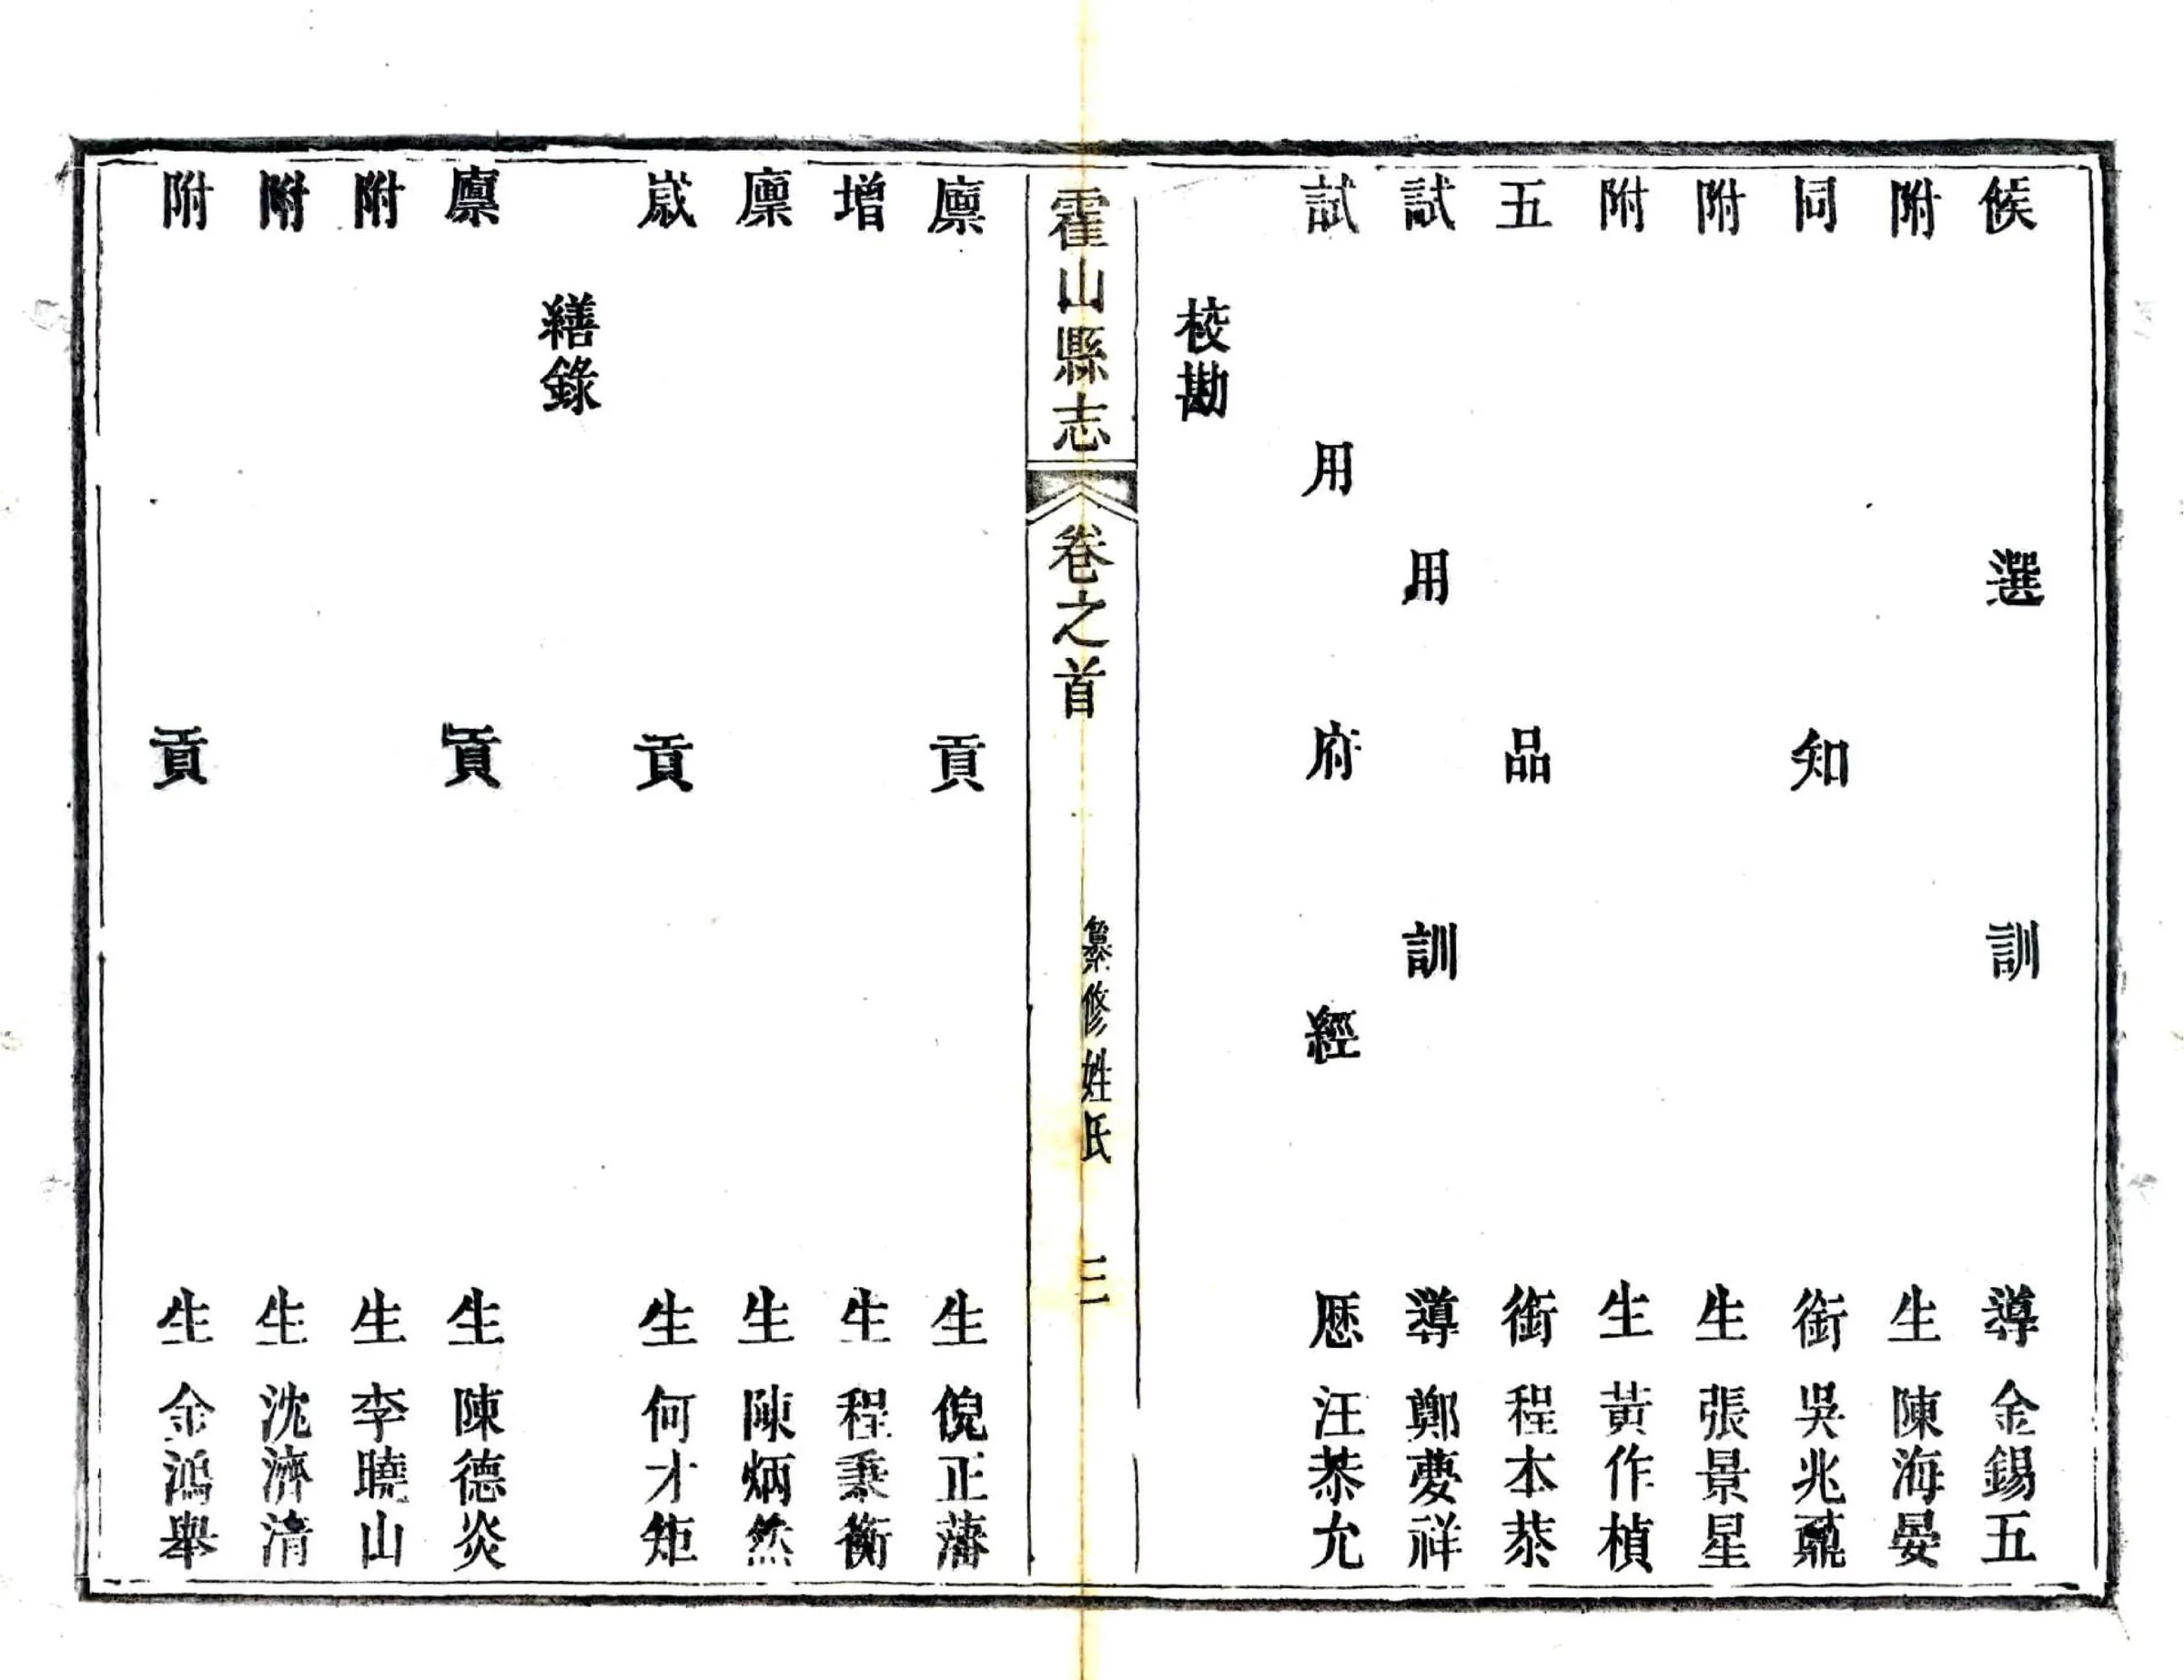 候選訓導金錫五
附生陳海晏
同知銜吳兆
附生張景星
附生黃作楨
五品銜程本恭
試用訓導鄭夢祥
試用府經歷汪恭允
校勘
霍山縣志 卷之首 纂修姓氏 三
廩貢生倪正藩
增生程秉衡
廩生陳炳然
歲貢生何才矩
繕錄
廩貢生陳德炎
附生李曉山
附生沈濟清
附貢生金鴻舉